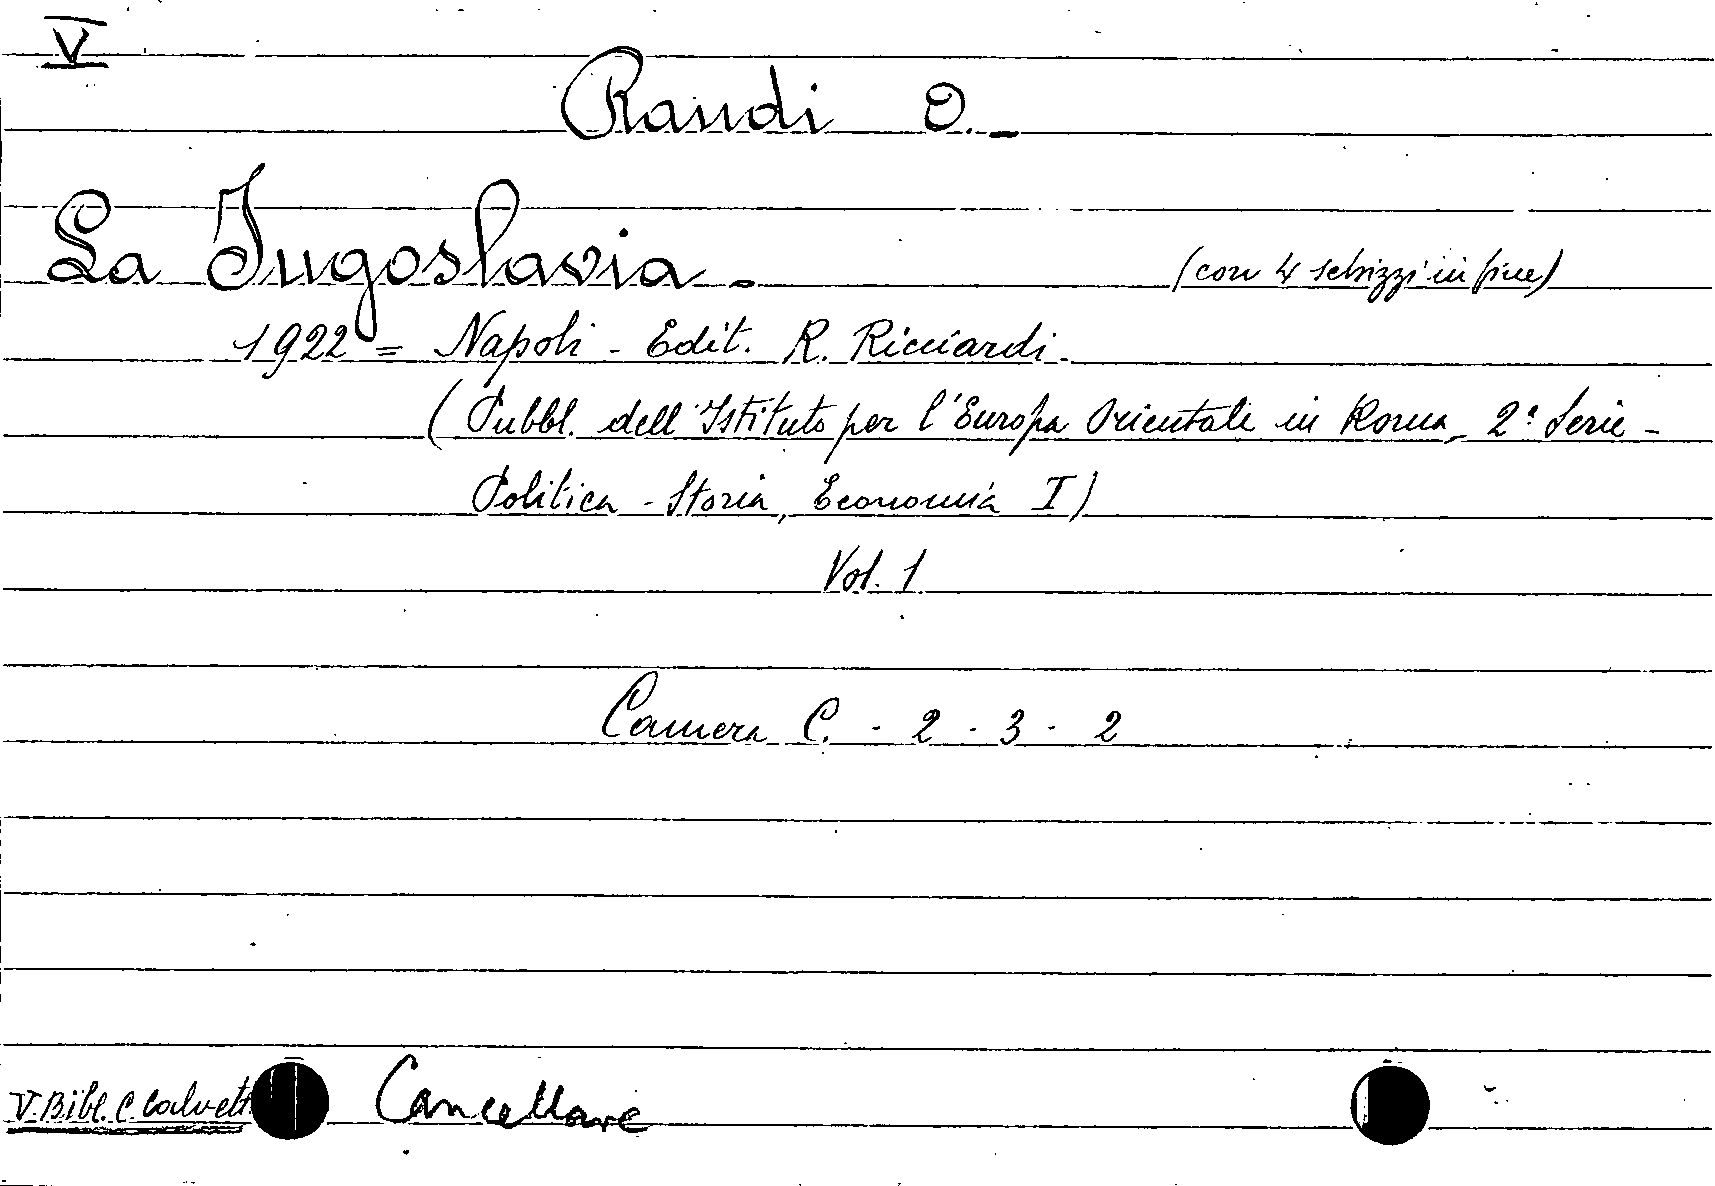 V
Randi O. -
La Jugoslavia. - (con 4 schizzi in fine)
1922 = Napoli - Edit. R. Ricciardi. -
(Pubbl. dell'Istituto per l'Europa Orientale in Roma, 2ª Serie -
Politica - Storia, Economia I)
Vol. 1
Camera C. - 2 - 3 - 2
V. Bibl. C. Calvett Cancellare